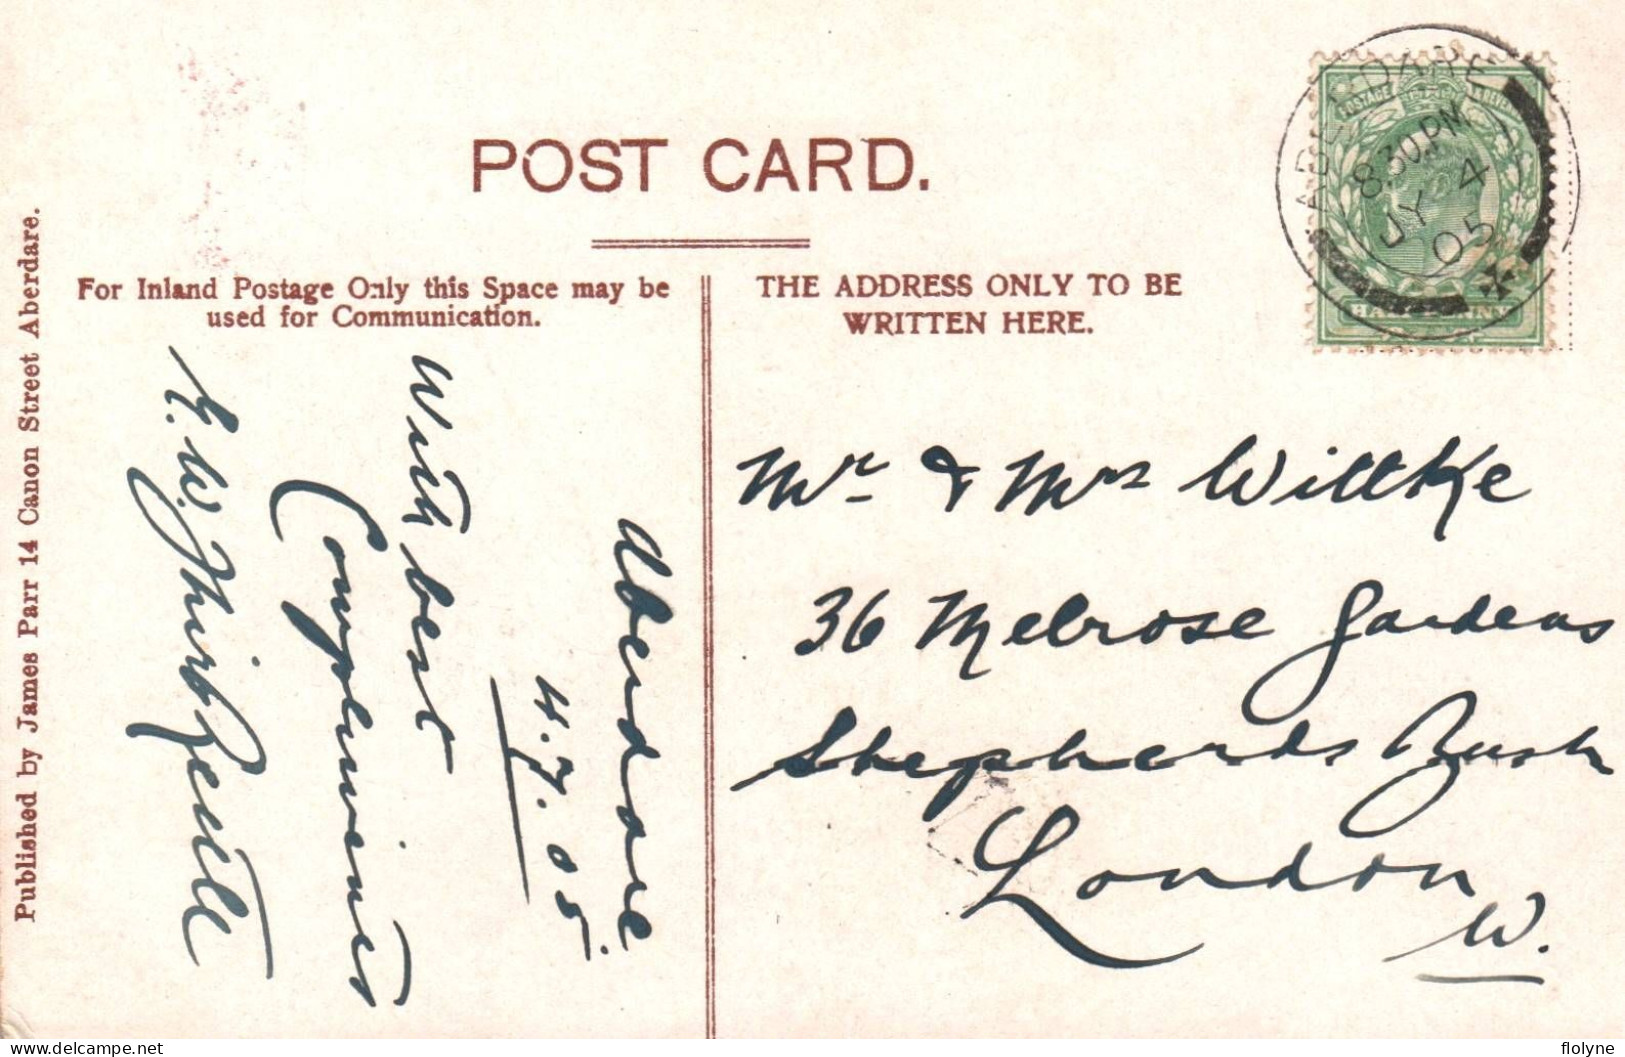 POST CARD.
For Inland Postage Only this Space may be
used for Communication.
THE ADDRESS ONLY TO BE
WRITTEN HERE.
Published by James Parr 14 Canon Street Aberdare.
ABERDARE
8 30 PM
JY 4
05
POSTAGE
Aberdare
4.7.05
With best
Compliments
W.
Mr & Mrs Wittke
36 Melrose Gardens
Shepherds Bush
London
W.
flolyne